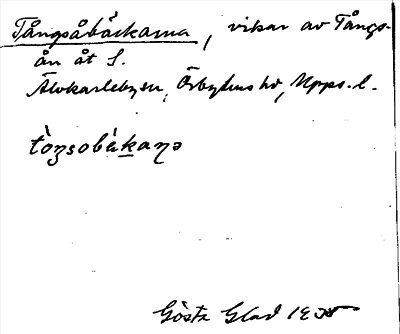 Tångsåbäckarna, vikar av Tångs-
ån åt S.
Älvkarleby sn, Örbyhus hd, Upps. l.
tòŋsobákaɳə
Gösta Glad